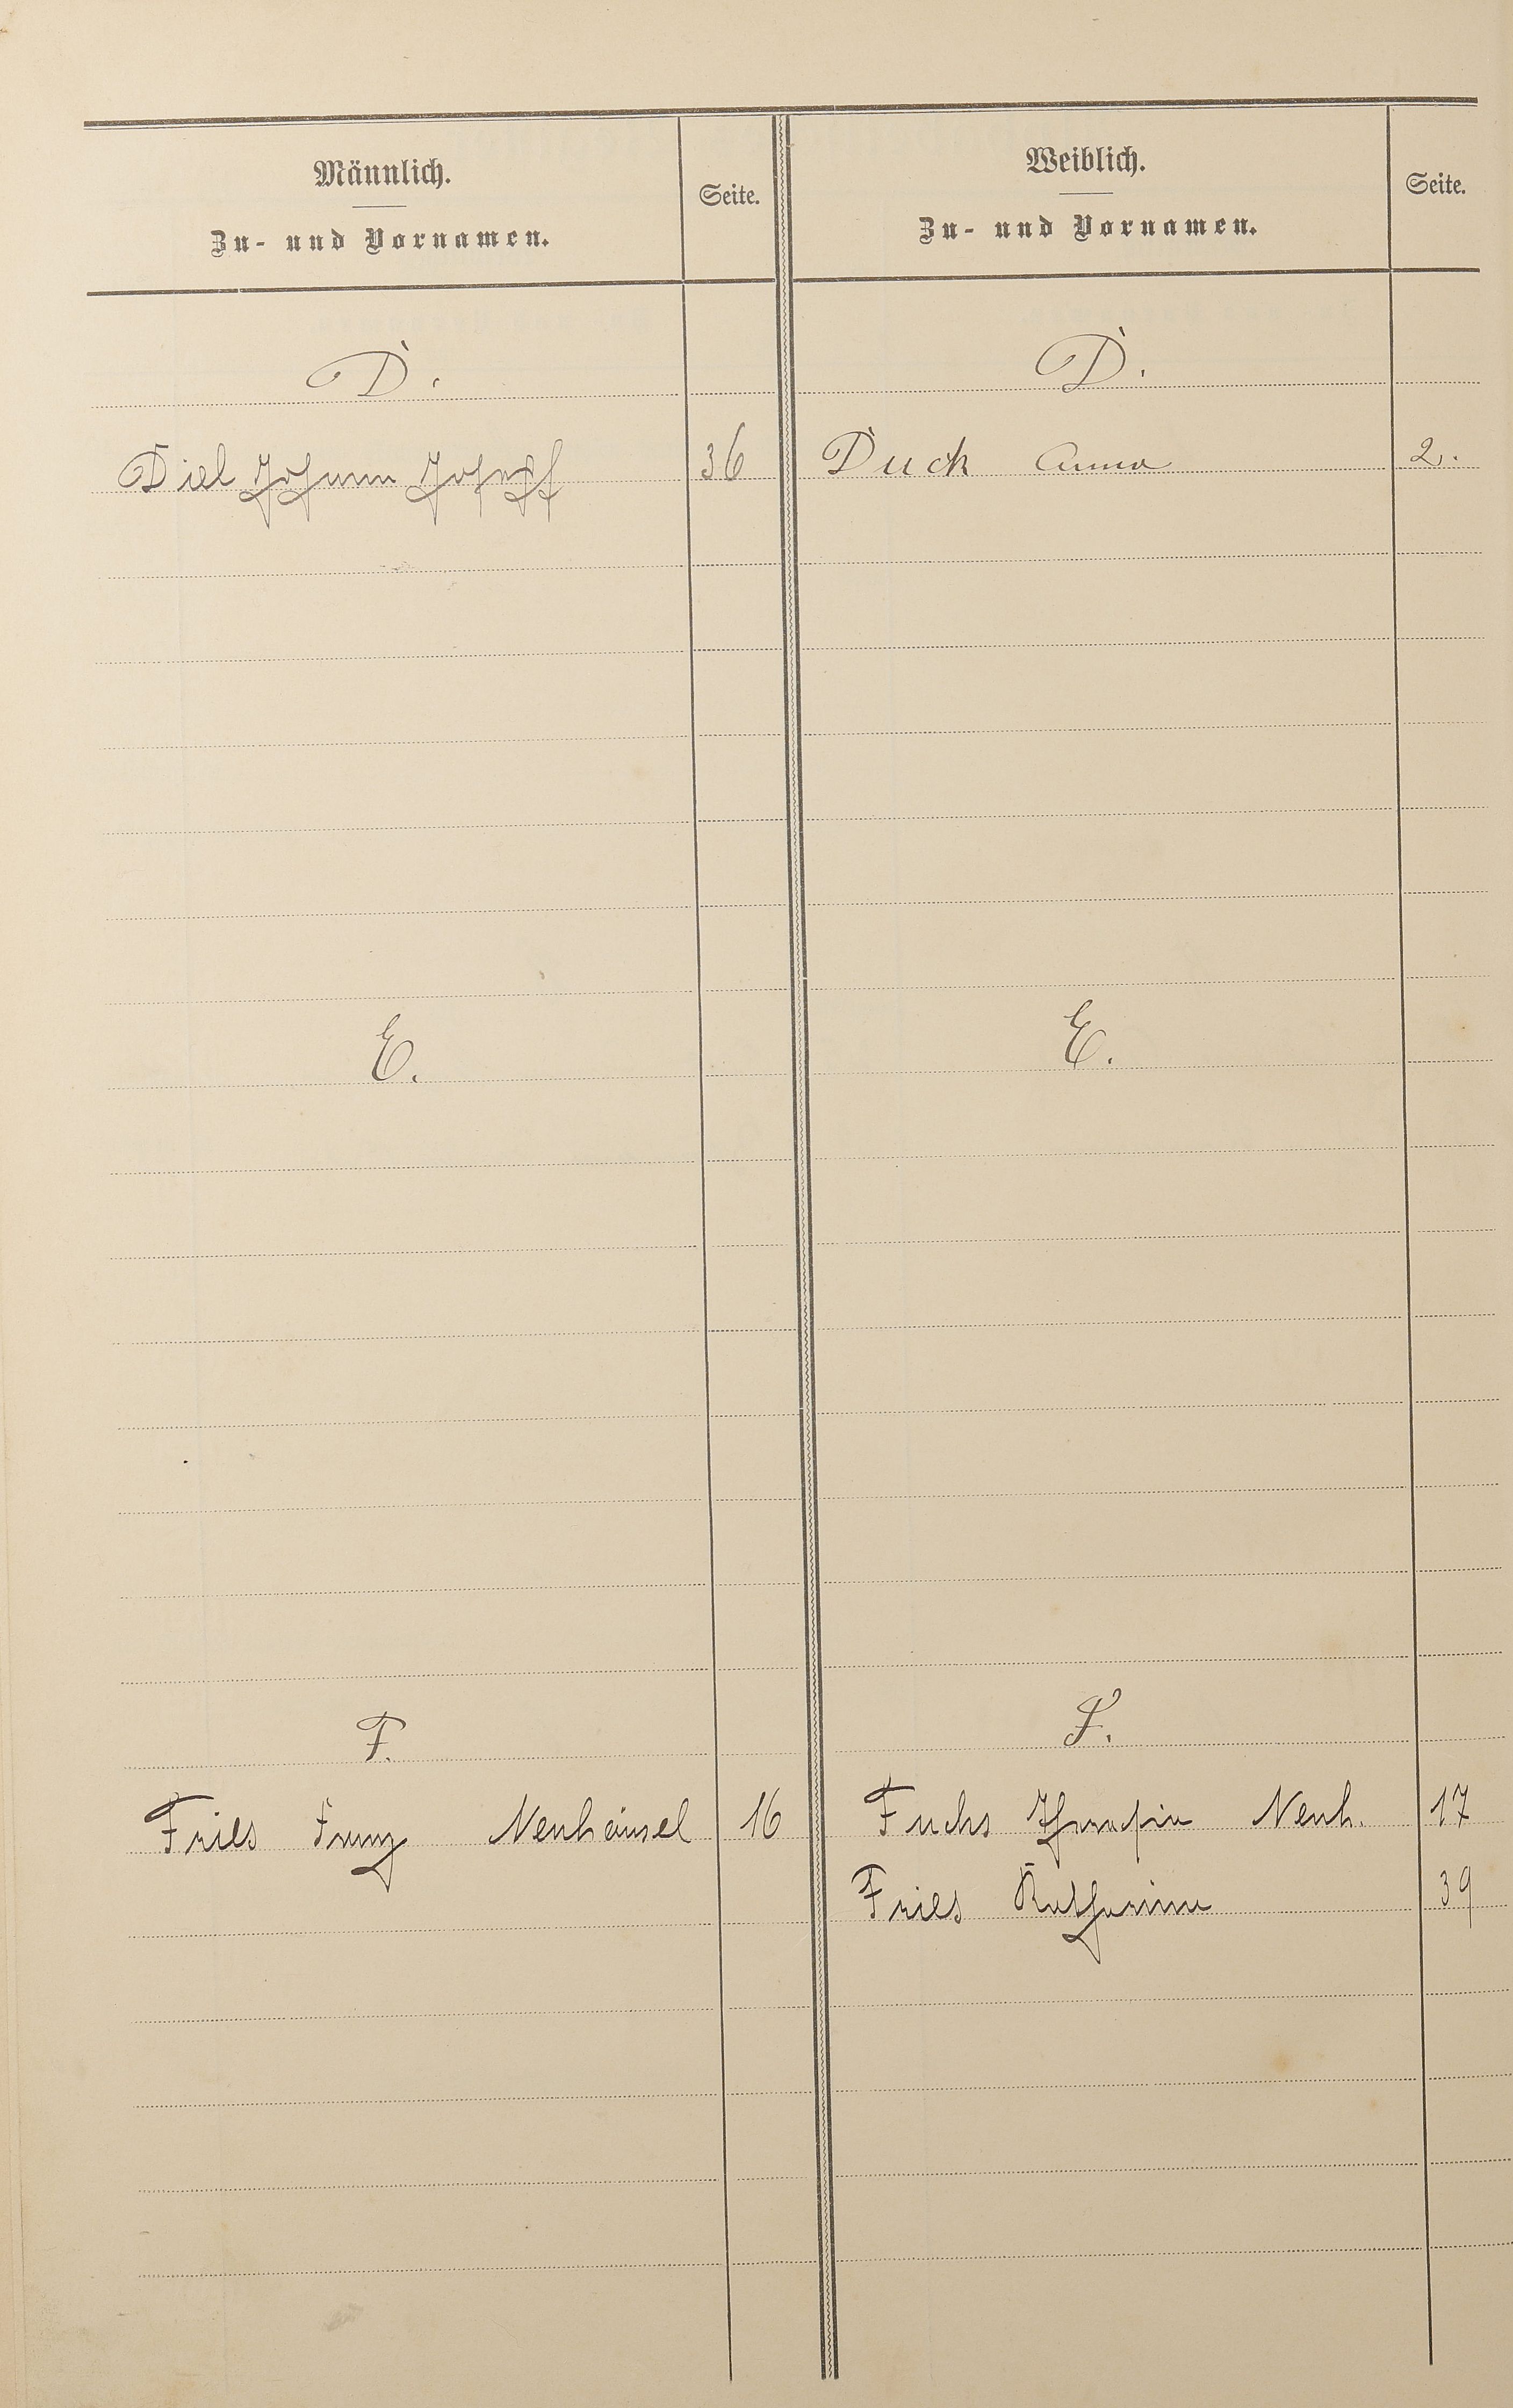 Männlich.
Zu- und Vornamen.
Seite.
Weiblich.
Zu- und Vornamen.
Seite.
D.
D.
Diel Johann Joseph 36
Duck Anna 2.
E.
E.
F.
F.
Fries Franz Neuhäusel 16
Fuchs Neuh. 17
Fries Katharina 39